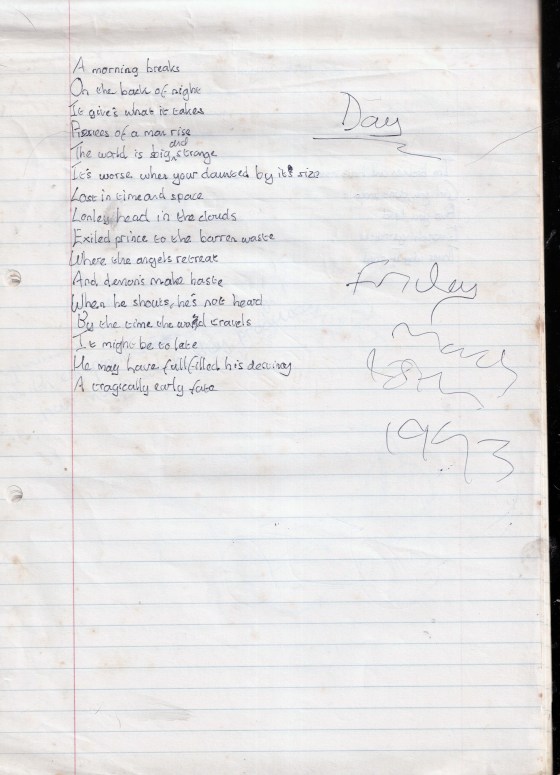 A morning breaks
On the back of night
It give's what it takes
Pieces of a man rise
The world is big and strange
It's worse when your daunted by it's size
Lost in time and space
Lonley head in the clouds
Exiled prince to the barren waste
Where the angels retreat
And demon's make haste
When he shouts, he's not heard
By the time the word travels
It might be to late
He may have fullfilled his destiny
A tragically early fate
Day
Friday
1993